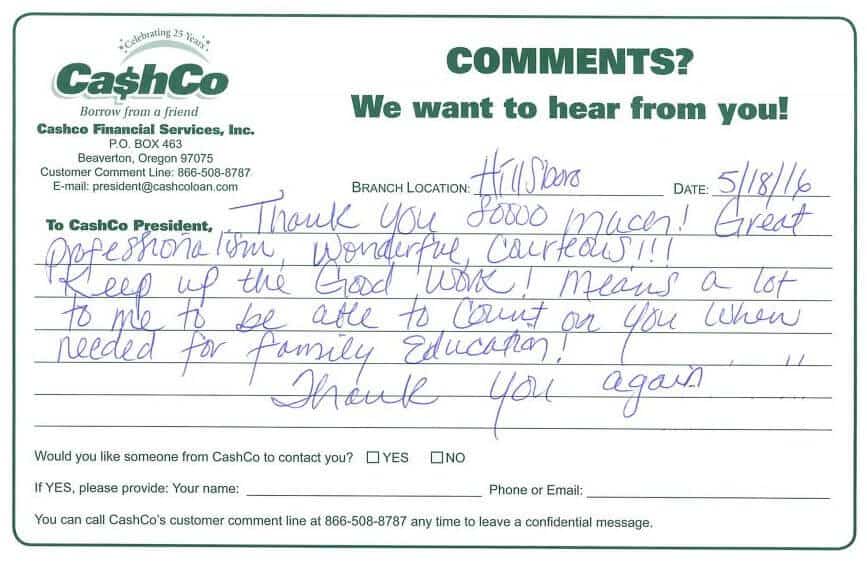 Celebrating 25 Years
Ca$hCo
Borrow from a friend
Cashco Financial Services, Inc.
P.O. BOX 463
Beaverton, Oregon 97075
Customer Comment Line: 866-508-8787
E-mail: president@cashcoloan.com
COMMENTS?
We want to hear from you!
BRANCH LOCATION: Hillsboro DATE: 5/18/16
To CashCo President, Thank you soooo much! Great
professionalism, wonderful, courteous!!!
Keep up the Good work! Means a lot
to me to be able to count on you when
needed for family Education!
Thank you again
Would you like someone from CashCo to contact you? YES NO
If YES, please provide: Your name: Phone or Email:
You can call CashCo's customer comment line at 866-508-8787 any time to leave a confidential message.